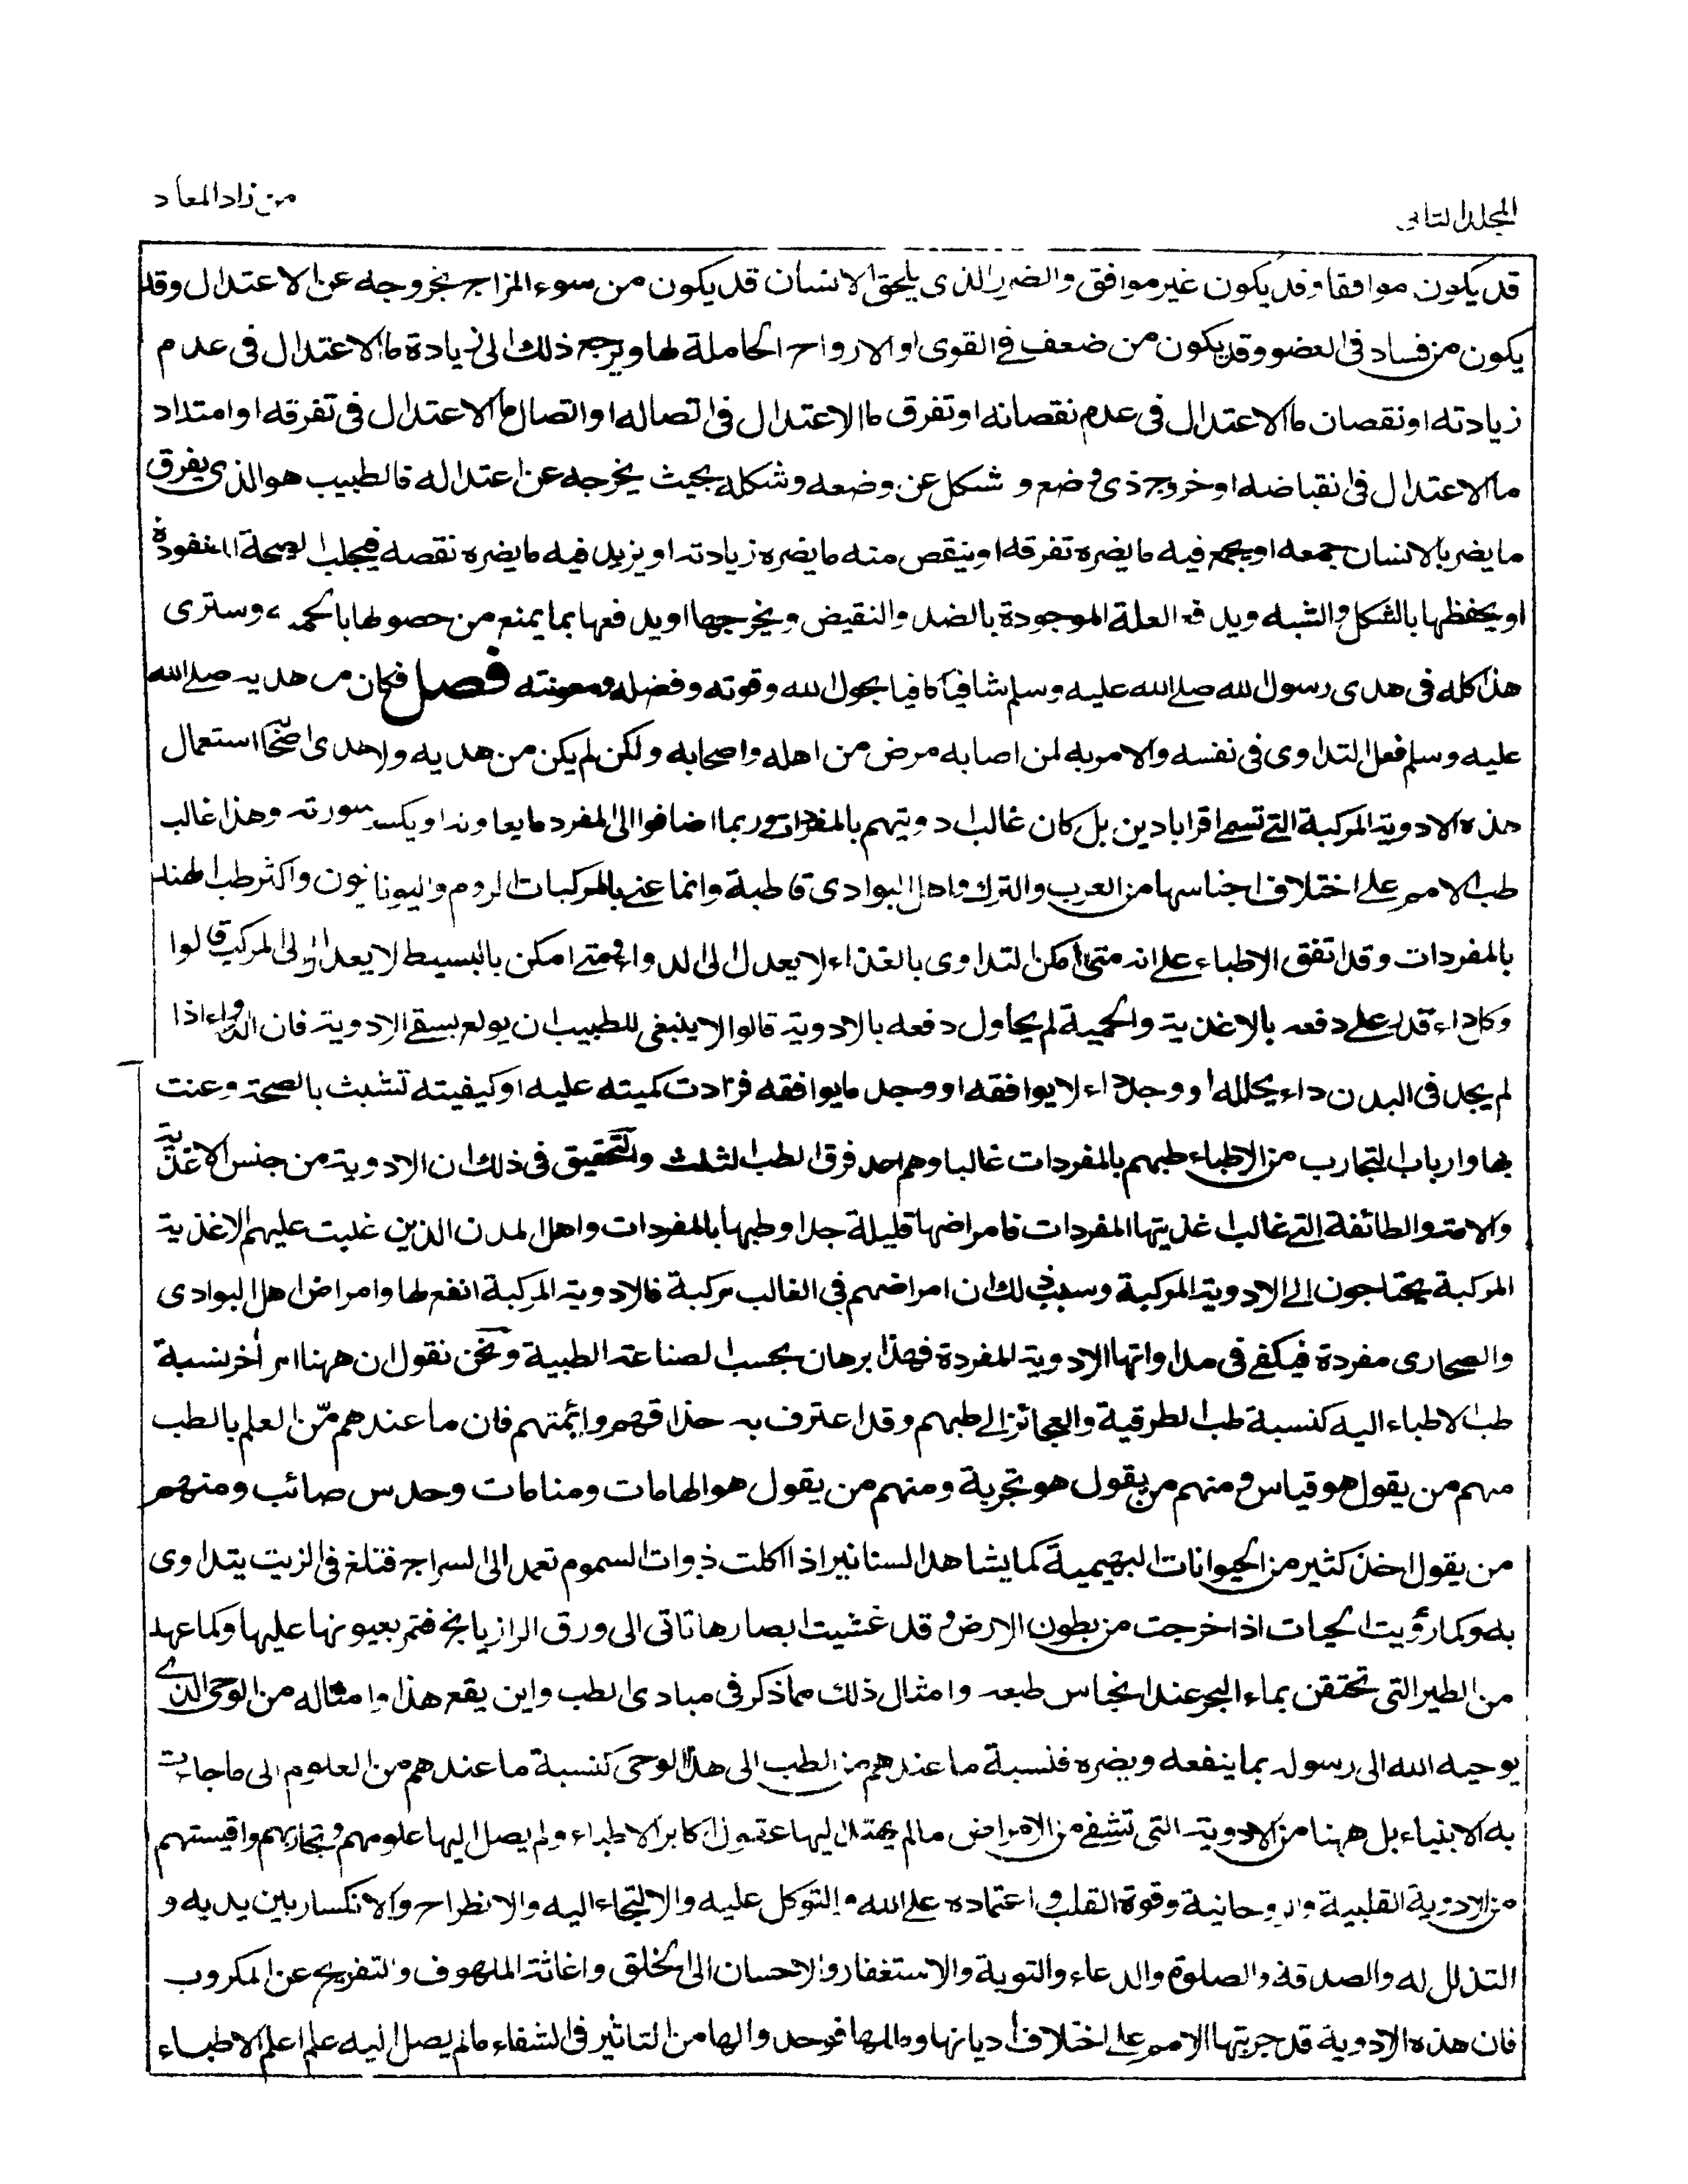 المجلد الثاني
من زاد المعاد
قد يكون موافقا وقد يكون غير موافق والضرر الذي يلحق الانسان قد يكون من سوء المزاج بخروجه عن الاعتدال وقد
يكون من فساد في العضو وقد يكون من ضعف في القوى او الارواح الحاملة لها ويرجع ذلك الى زيادة ما الاعتدال في عدم
زيادته او نقصان ما الاعتدال في عدم نقصانه او تفرق ما الاعتدال في اتصاله او اتصال ما الاعتدال في تفرقه او امتداد
ما الاعتدال في انقباضه او خروج ذي وضع و شكل عن وضعه وشكله بحيث يخرجه عن اعتداله فالطبيب هو الذي يفرق
ما يضر بالانسان جمعه او يجمع فيه ما يضره تفرقه او ينقص منه ما يضره زيادته او يزيد فيه ما يضره نقصه فيجلب الصحة المفقودة
او يحفظها بالشكل والشبه ويدفع العلة الموجودة بالضد والنقيض ويخرجها او يدفعها بما يمنع من حصولها بالحمية وسترى
هذا كله في هدى رسول الله صلى الله عليه وسلم شافيا كافيا بحول الله وقوته وفضله ومعونته فصل فكان من هديه صلى الله
عليه وسلم فعل التداوى في نفسه والامر به لمن اصابه مرض من اهله واصحابه ولكن لم يكن من هديه ولا هدى اصحابه استعمال
هذه الادوية المركبة التي تسمى اقرابادين بل كان غالب ادويتهم بالمفردات وربما اضافوا الى المفرد ما يعاونه او يكسر سورته وهذا غالب
طب الامم على اختلاف اجناسها من العرب والترك واهل البوادى قاطبة وانما عنى بالمركبات الروم واليونانيون واكثر طب الهند
بالمفردات وقد اتفق الاطباء على انه متى امكن التداوى بالغذاء لا يعدل الى الدواء ومتى امكن بالبسيط لا يعدل الى المركب قالوا
وكل داء قدر على دفعه بالاغذية والحمية لم يحاول دفعه بالادوية قالوا لا ينبغى للطبيب ان يولع بسقى الادوية فان الدواء اذا
لم يجد في البدن داء يحلله او وجد داء لا يوافقه او وجد ما يوافقه فزادت كميته عليه او كيفيته تشبث بالصحة وعبث
بها وارباب التجارب من الاطباء طبهم بالمفردات غالبا وهم احد فرق الطب الثلث والتحقيق في ذلك ان الادوية من جنس الاغذية
والامة والطائفة التي غالب اغذيتها المفردات فامراضها قليلة جدا وطبها بالمفردات واهل المدن الذين غلبت عليهم الاغذية
المركبة يحتاجون الى الادوية المركبة وسبب ذلك ان امراضهم في الغالب مركبة فالادوية المركبة انفع لها وامراض اهل البوادى
والصحارى مفردة فيكفى في مداواتها الادوية المفردة فهذا برهان بحسب الصناعة الطبية ونحن نقول ان ههنا امرا اخر نسبة
طب الاطباء اليه كنسبة طب الطرقية والعجائز الى طبهم وقد اعترف به حذاقهم وائمتهم فان ما عندهم من العلم بالطب
منهم من يقول هو قياس ومنهم من يقول هو تجربة ومنهم من يقول هو الهامات ومنامات وحدس صائب ومنهم
من يقول اخذ كثير من الحيوانات البهيمية كما يشاهد السنانير اذا اكلت ذوات السموم تعمد الى السراج فتلغ في الزيت يتداوى
به وكما رؤيت الحيات اذا خرجت من بطون الارض وقد غشيت ابصارها تاتى الى ورق الرازيانج فتمر بعيونها عليها وكما عهد
من الطير التي تحتقن بماء البحر عند انحباس طبعه وامثال ذلك مما ذكر في مبادى الطب واين يقع هذا وامثاله من الوحى الذى
يوحيه الله الى رسوله بما ينفعه ويضره فنسبة ما عندهم من الطب الى هذا الوحى كنسبة ما عندهم من العلوم الى ما جاءت
به الانبياء بل ههنا من الادوية التي تشفى من الامراض ما لم يهتد اليها عقول اكابر الاطباء ولم يصل اليها علومهم وتجاربهم واقيستهم
من الادوية القلبية والروحانية وقوة القلب واعتماده على الله والتوكل عليه والالتجاء اليه والانطراح والانكسار بين يديه و
التذلل له والصدقة والصلوة والدعاء والتوبة والاستغفار والاحسان الى الخلق واغاثة الملهوف والتفريج عن المكروب
فان هذه الادوية قد جربتها الامم على اختلاف اديانها ومللها فوجدوا لها من التاثير في الشفاء ما لم يصل اليه علم اعلم الاطباء